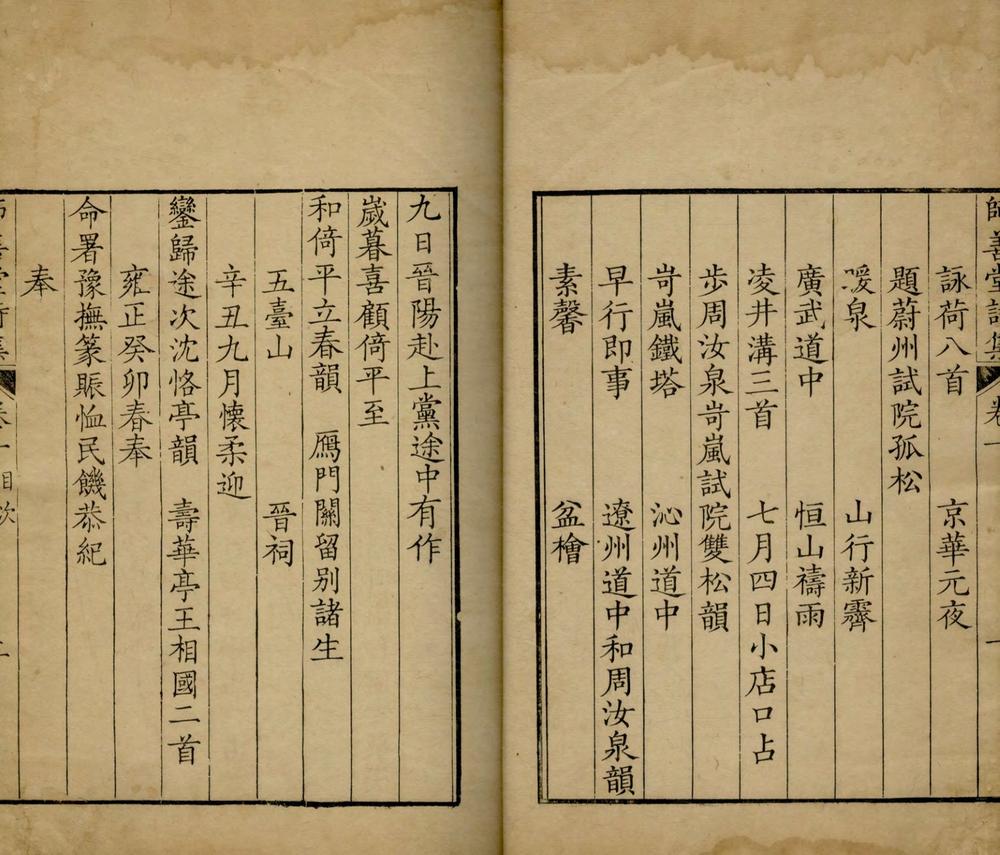 師善堂詩集 卷一 一
詠荷八首 京華元夜
題蔚州試院孤松
煖泉 山行新霽
廣武道中 恒山禱雨
凌井溝三首 七月四日小店口占
步周汝泉岢嵐試院雙松韻
岢嵐鐵塔 沁州道中
早行即事 遼州道中和周汝泉韻
素馨 盆檜
九日晉陽赴上黨途中有作
嵗暮喜顧倚平至
和倚平立春韻 鴈門關留别諸生
五臺山 晉祠
辛丑九月懷柔迎
鑾歸途次沈恪亭韻 壽華亭王相國二首
雍正癸卯春奉
命署豫撫篆賑恤民饑恭紀
奉
師善堂詩集 卷一 目次 二